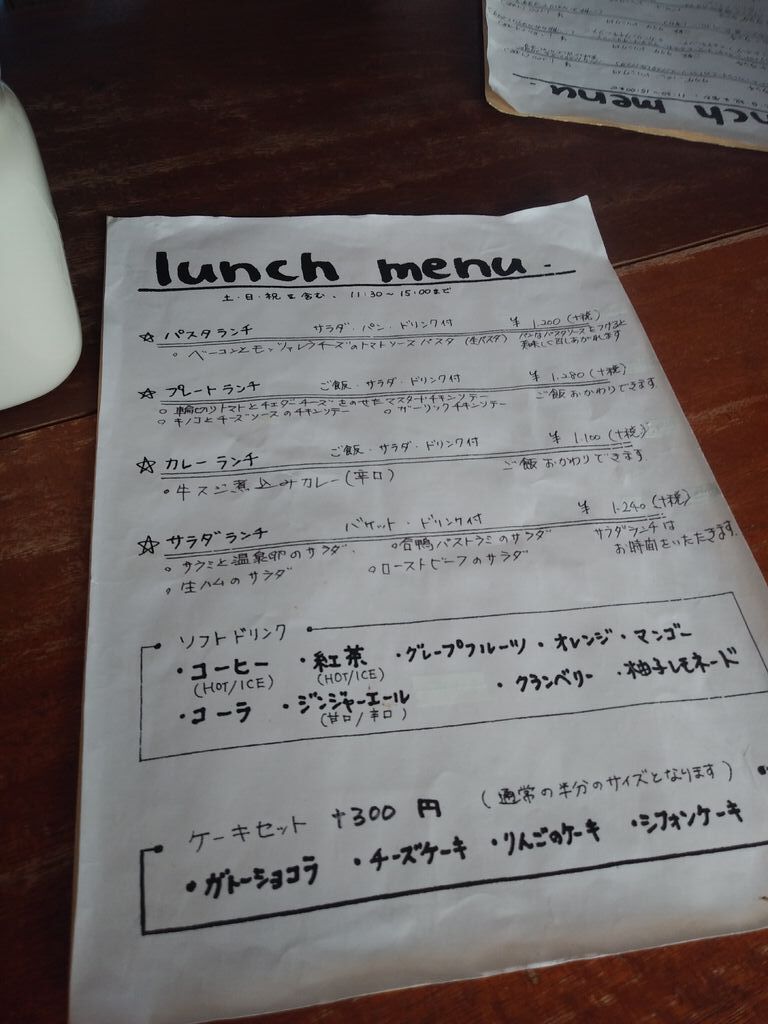 lunch menu
土・日・祝を含む、11:30〜15:00まで
☆ パスタランチ サラダ・パン・ドリンク付 ¥1,200(+税)
○ ベーコンとモッツァレラチーズのトマトソースパスタ (生パスタ) パンはパスタソースをつけると
美味しく召しあがれます
☆ プレートランチ ご飯・サラダ・ドリンク付 ¥1,280(+税)
○ 輪切りトマトとチェダーチーズをのせたマスタードチキンソテー ご飯おかわりできます
○ キノコとチーズソースのチキンソテー ○ ガーリックチキンソテー
☆ カレーランチ ご飯・サラダ・ドリンク付 ¥1,100(+税)
・牛スジ煮込みカレー(辛口) ご飯おかわりできます
☆ サラダランチ バケット・ドリンク付 ¥1,240(+税)
○ サラミと温泉卵のサラダ ○合鴨パストラミのサラダ サラダランチは
・生ハムのサラダ ○ローストビーフのサラダ お時間をいただきます
ソフトドリンク
・コーヒー ・紅茶 ・グレープフルーツ ・オレンジ ・マンゴー
(HOT/ICE) (HOT/ICE)
・コーラ ・ジンジャーエール ・クランベリー ・柚子レモネード
(甘口/辛口)
ケーキセット +300円 (通常の半分のサイズとなります)
・ガトーショコラ ・チーズケーキ ・りんごのケーキ ・シフォンケーキ
nch menu